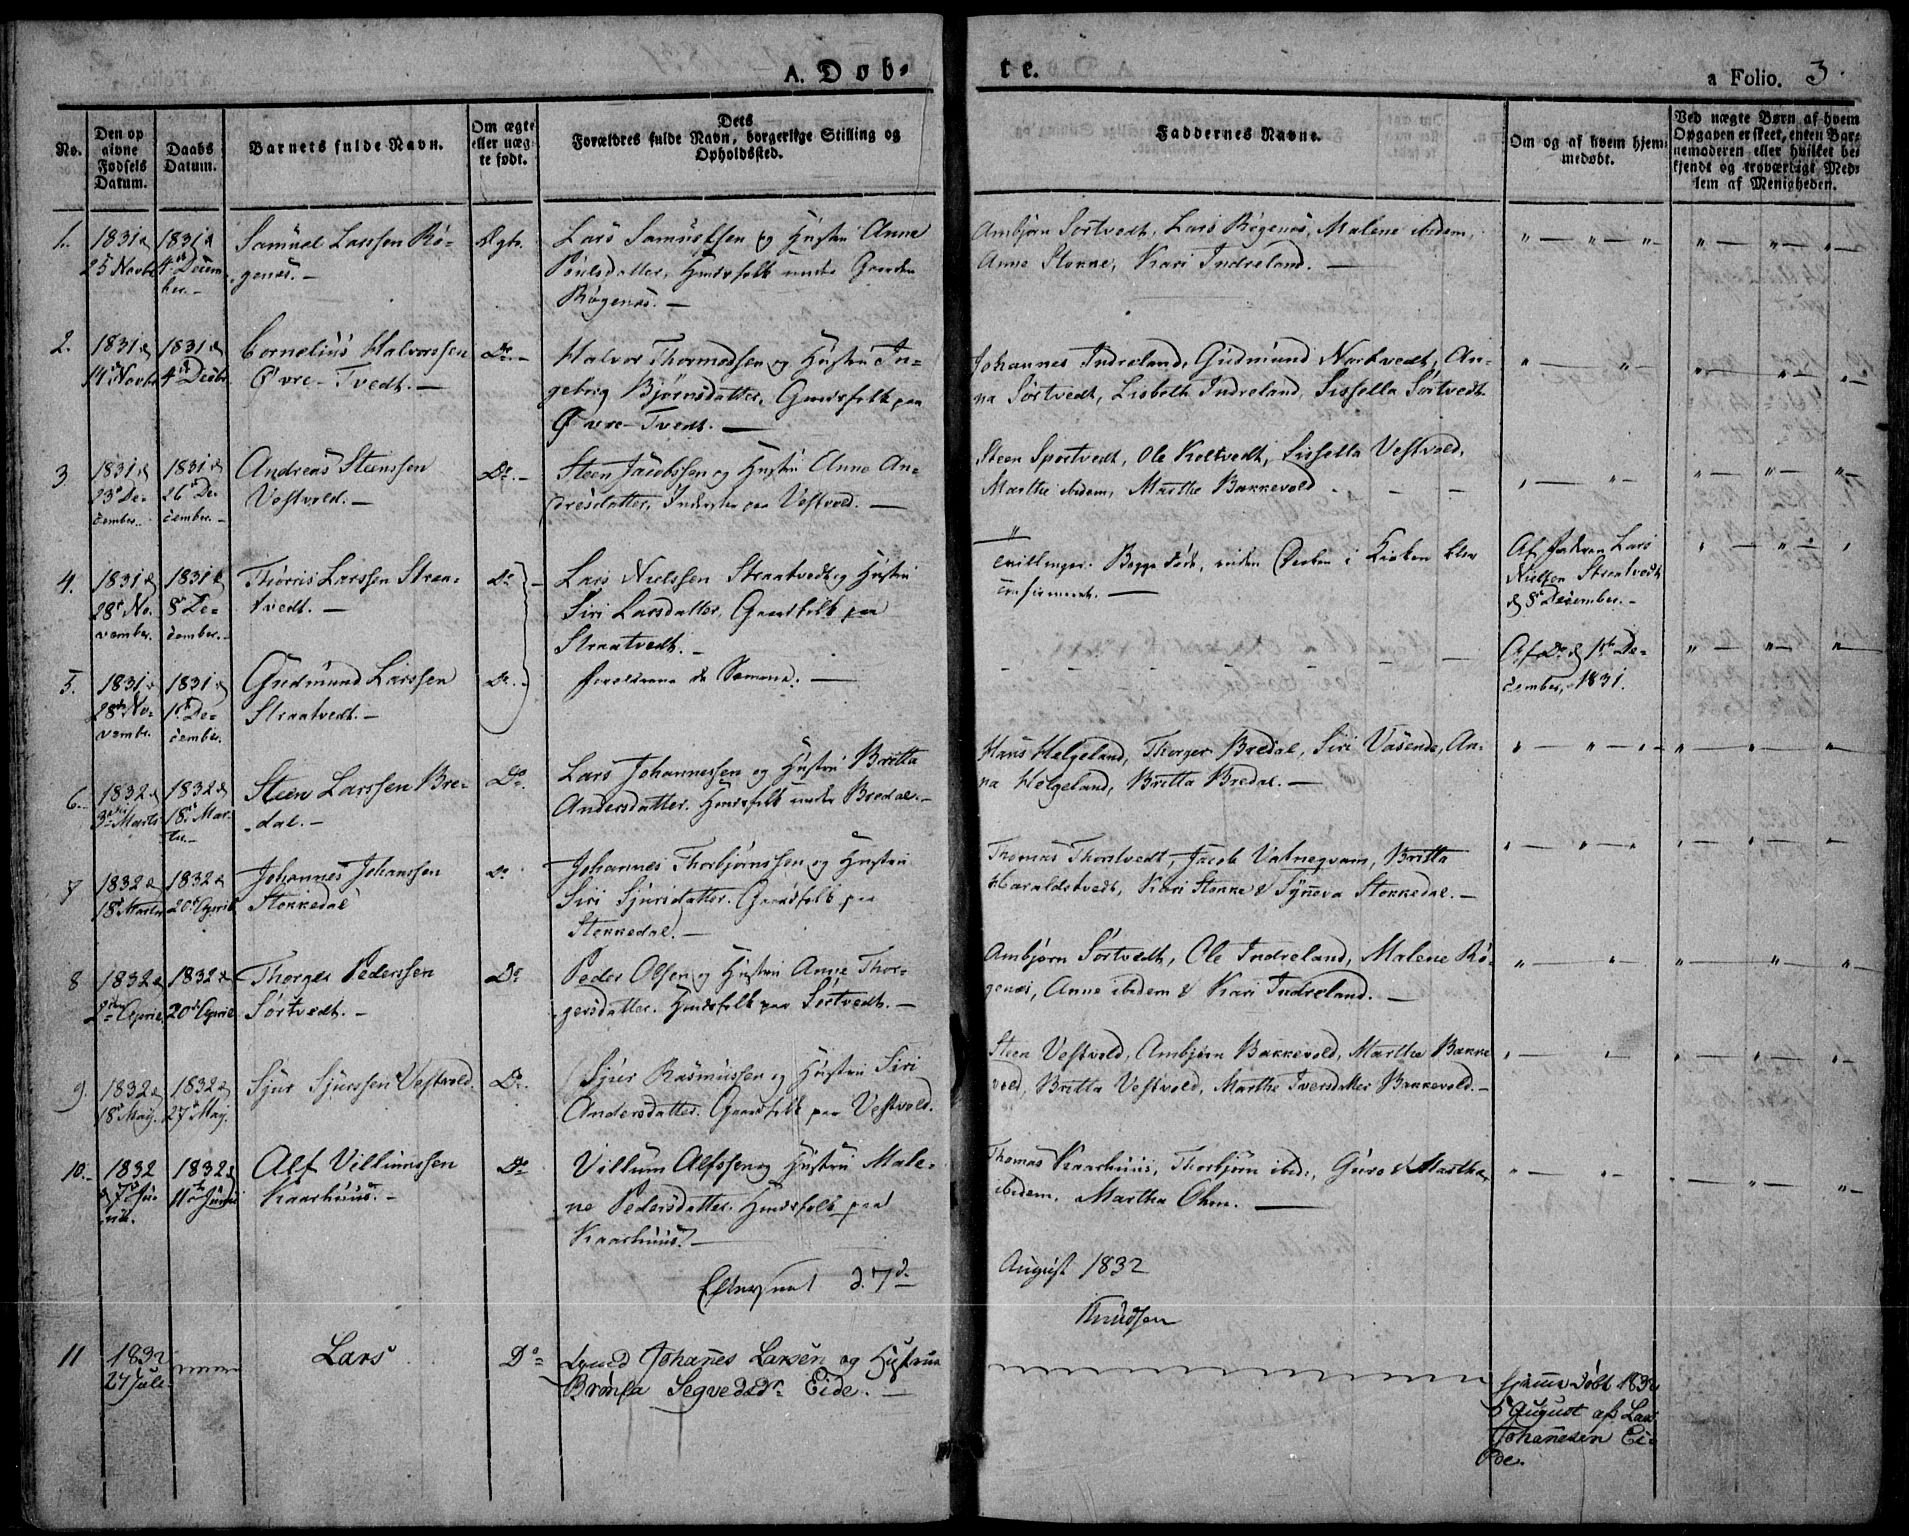 A. Døb-
te.
a Folio. 3.
No.
Den op
givne
Fødsels
Datum.
Daabs
Datum.
Barnets fulde Navn.
Om ægte
eller uæg-
te født.
Dets
Forældres fulde Navn, borgerlige Stilling og
Opholdssted.
Faddernes Navne.
Om og af hvem hjem-
medøbt.
Ved uægte Børn af hvem
Opgaven er skeet, enten Bar-
nemoderen eller hvilket be-
kjendt og troværdigt Med-
lem af Menigheden.
1.
1831 d
25 Novbr
1831 d
4de Decem-
ber.
Samuel Larssen Rø-
genæs.
Ægte.
Lars Samuelsen og Hustru Anne
Poulsdatter, Huusfolk under Gaarden
Røgenæs.
Ambjørn Sørtvedt, Lars Røgenæs, Malene ibidem,
Anne Stokke, Kari Indreland.
2.
1831 d
14 Novbr
1831 d
4de Decbr
Cornelius Halvorssen
Øvre-Tvedt.
Do.
Halvor Thormodsen og Hustru In-
gebrig Bjørnsdatter, Gaardfolk paa
Øvre-Tvedt.
Johannes Indreland, Gudmund Nortvedt, An-
na Sørtvedt, Lisbeth Indreland, Sissella Sørtvedt.
3
1831 d
23de De-
cember.
1831 d
26de De-
cember.
Andreas Steenssen
Vestvold.
Do.
Steen Jacobssen og Hustru Anne An-
dresdatter, Inderster paa Vestvold.
Steen Sportvedt, Ole Koltvedt, Sissella Vestvold,
Marthe ibidem, Marthe Bakkevold
4.
1831 d
28de No-
vember.
1831 d
8de De-
cember.
Thorris Larssen Straa-
tvedt.
Do
Lars Nielssen Straatvedt og Hustru
Siri Larsdatter, Gaardfolk paa
Straatvedt.
Tvillinger. Begge døde, inden Daaben i Kirken blev
confirmeret.
Af Faderen Lars
Nielsen Straatvedt
d 8de December.
5.
1831 d
28de No-
vember.
1831 d
1ste De-
cember.
Gudmund Larssen
Straatvedt.
Do.
Forældrene de Samme.
Af Do d 1ste De-
cember, 1831.
6.
1832 d
3die Marts
1832 d
18de Mar-
ts.
Steen Larssen Bre-
dal.
Do.
Lars Johannessen og Hustru Britta
Andersdatter. Huusfolk under Bredal.
Hans Helgeland, Thorger Bredal, Siri Vasende, An-
na Helgeland, Britta Bredal.
7
1832 d
18de Marts
1832 d
20de April
Johannes Johanssen
Stokkedal
Do
Johannes Thorbjørnssen og Hustru
Siri Sjursdatter. Gaardfolk paa
Stokkedal.
Thomas Thorstvedt, Jacob Vatnegvam, Britta
Haraldstvedt, Kari Stokke & Synneva Stokkedal.
8
1832 d
2den April
1832 d
20de April
Thorger Pederssen
Sørtvedt.
Do
Peder Olsen og Hustru Anne Thor-
gersdatter. Huusfolk paa Sørtvedt.
Ambjørn Sørtvedt, Ole Indreland, Malene Rø-
genæs, Anne ibidem & Kari Indreland.
9.
1832 d
18de Maj.
1832 d
27de Maj.
Sjur Sjurssen Vestvold.
Do.
Sjur Rasmussen og Hustru Siri
Andersdatter. Gaardfolk paa Vestvold.
Steen Vestvold, Ambjørn Bakkevold, Marthe Bakke-
vold, Britta Vestvold, Marthe Iversdatter Bakkevold.
10.
1832
d 7de Ju-
nii.
1832 d
11te Junii
Alf Villumssen
Kaarhuus.
Do
Villum Alfssen og Hustru Male-
ne Pedersdatter. Huusfolk paa
Kaarhuus.
Thomas Kaarhuus, Thorbjørn ibid:, Guro & Martha
ibidem, Martha Ohm.
Efterseet d. 7de
August 1832
Knudsen
11
1832
27 Juli.
Lars
Do
Johanes Larsen og Hustrue
Eide.
hjæmedøbt 1832
5 August af Lars
Johanesen Ei-
de.